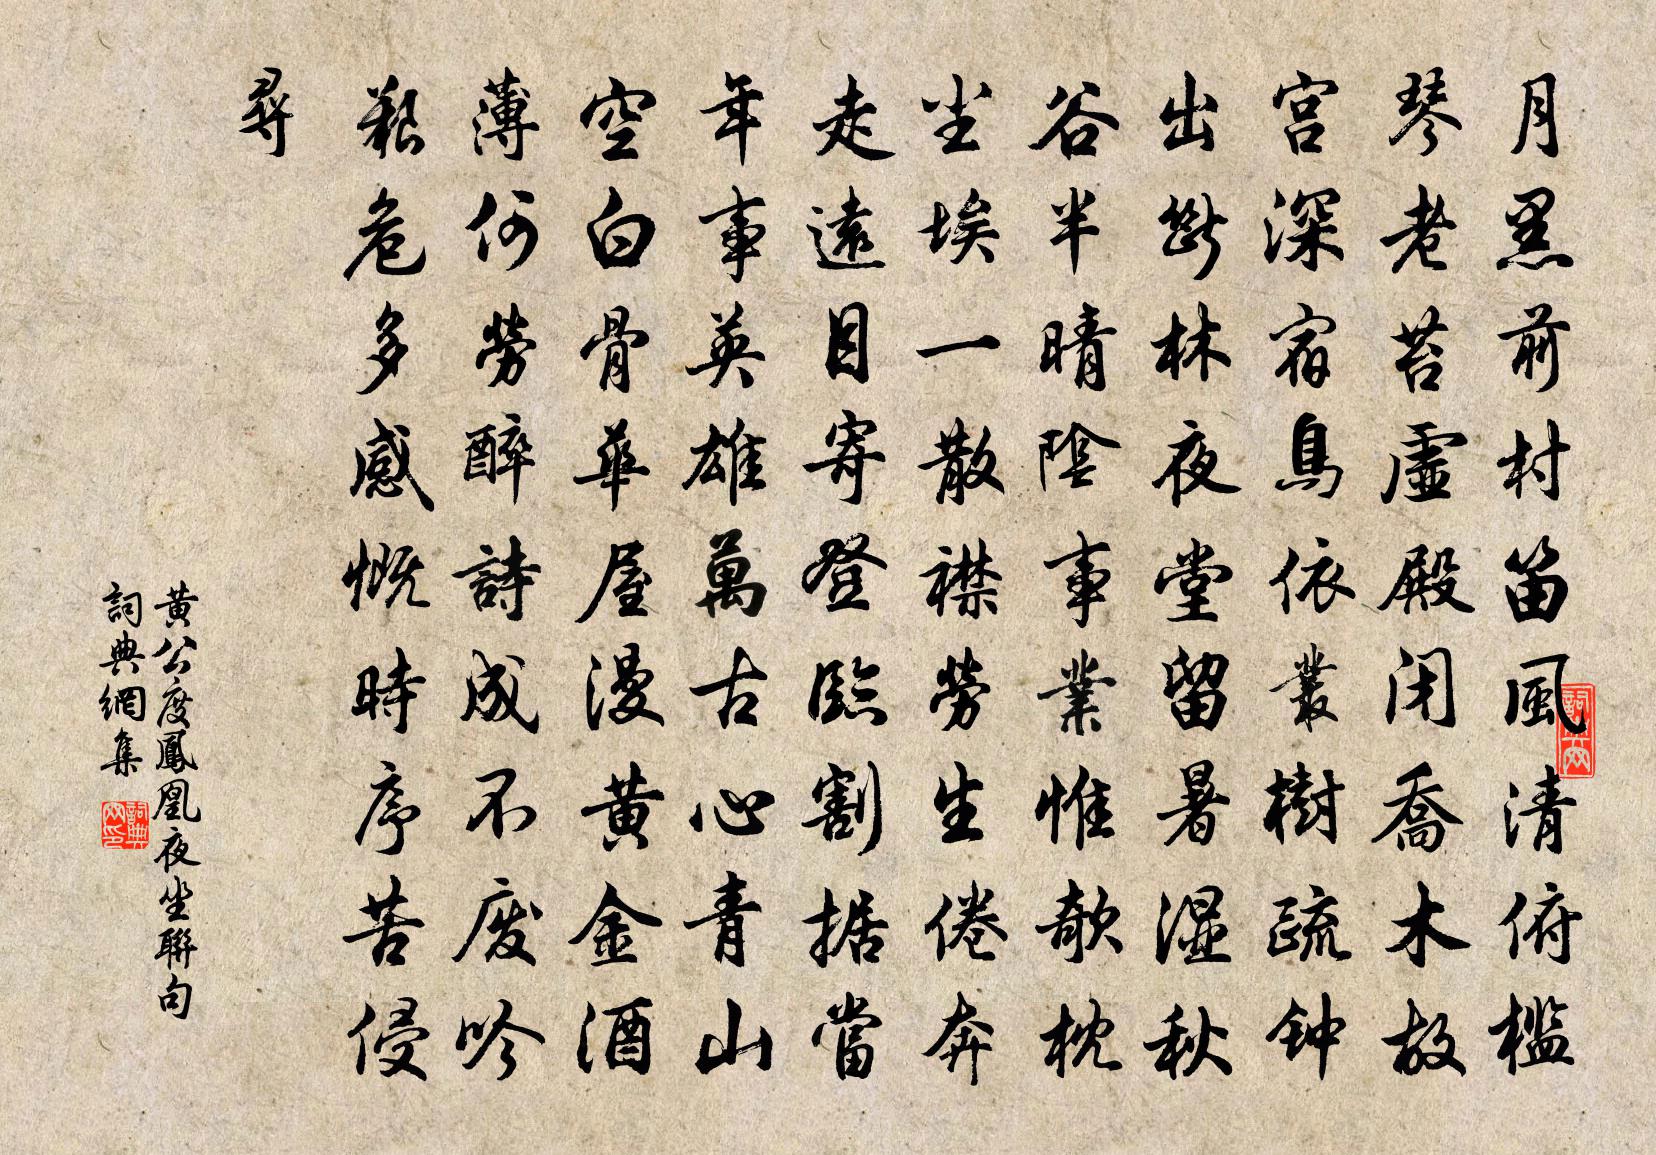 月黑前村笛風清俯檻
琴老苔虛殿閉喬木故
宮深宿鳥依叢樹疏钟
出斷林夜堂留暑濕秋
谷半晴陰事業惟欹枕
尘埃一散襟勞生倦奔
走遠目寄登臨割據當
年事英雄萬古心青山
空白骨華屋漫黃金酒
薄何勞醉詩成不廢吟
艱危多感慨時序苦侵
尋
黃公度鳳凰夜坐聯句
詞典網集
詞典网
詞典网印